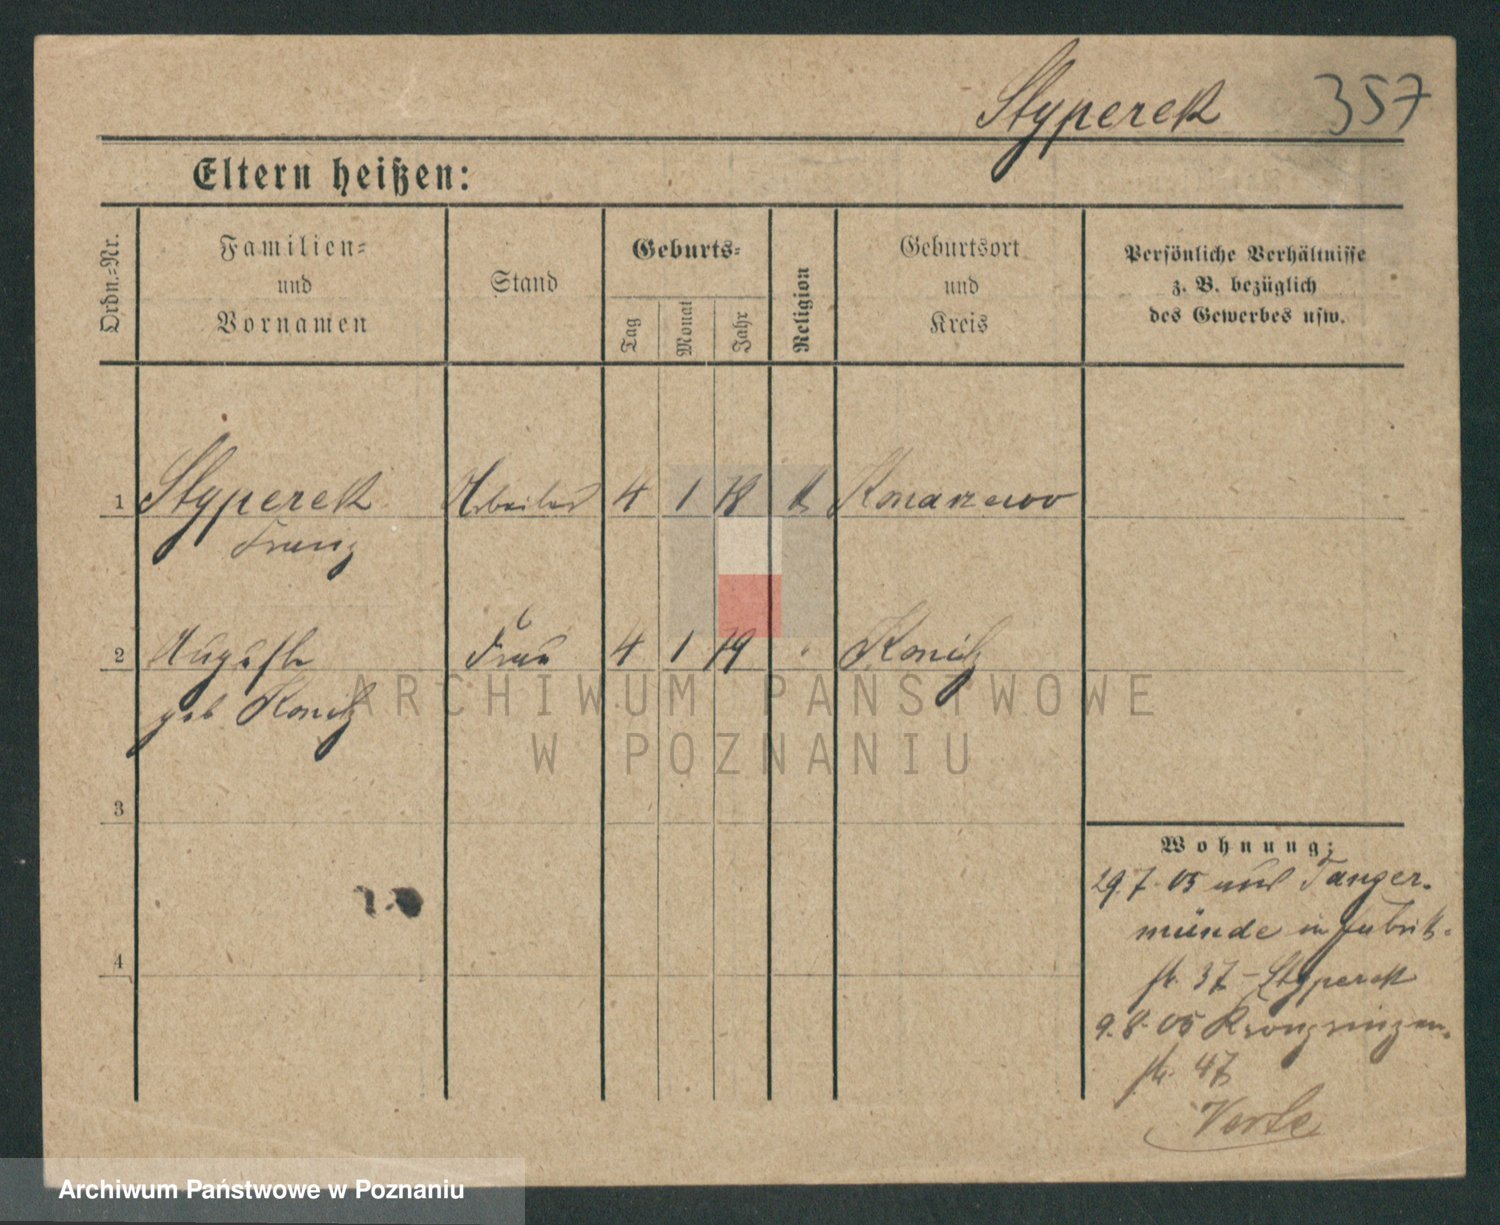 Styperek 357
Eltern heißen:
Ordn.=Nr.
Familien=
und
Vornamen
Stand
Geburts=
Tag
Monat
Jahr
Religion
Geburtsort
und
Kreis
Persönliche Verhältnisse
z. B. bezüglich
des Gewerbes usw.
1 Styperek Arbeiter 4 1 78 k Konarzewo
Franz
2 Auguste Frau 4 1 79 Konitz
geb Konitz
ARCHIWUM PAŃSTWOWE
W POZNANIU
3
Wohnung:
29.7.05 aus Tanger-
münde in Fabrik-
str. 37 - Styperek
4
9.8.05 Kronprinzen-
str. 47
Archiwum Państwowe w Poznaniu